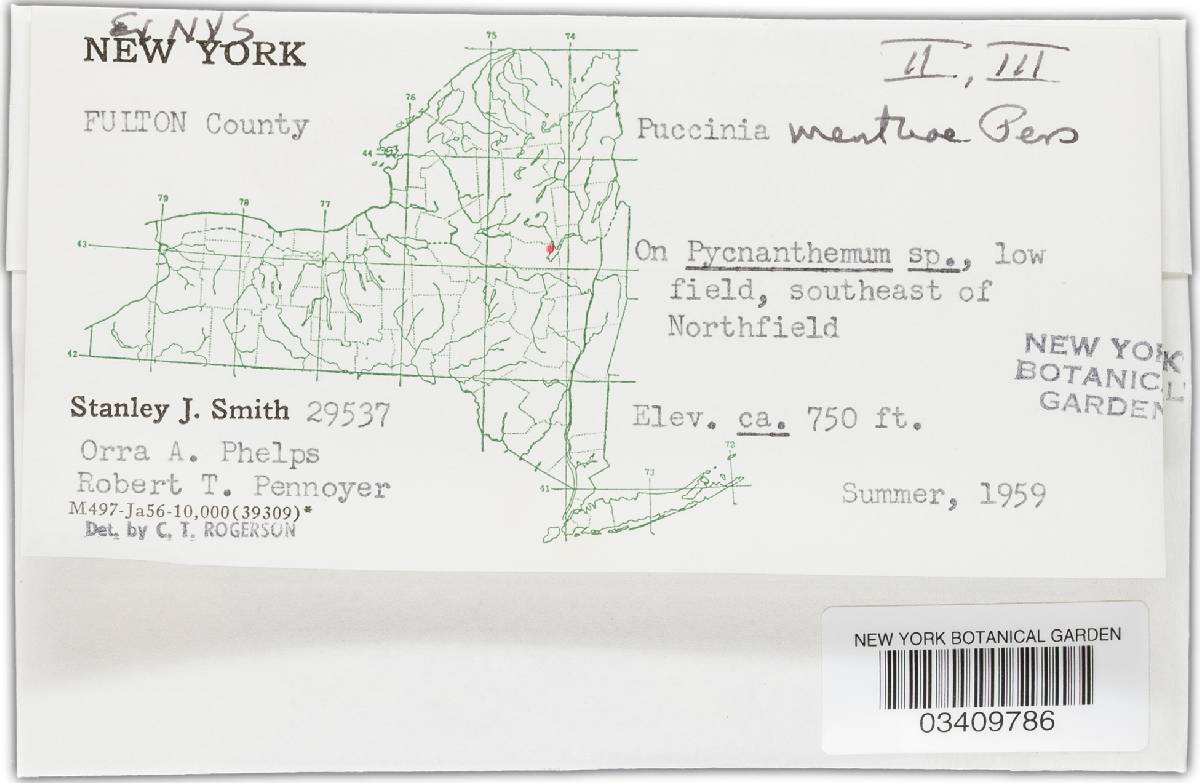 Ex NYS
NEW YORK
II, III
FULTON County
Puccinia menthae Pers
75 74
76
44
79 78 77
43
42
On Pycnanthemum sp., low
field, southeast of
Northfield
NEW YORK
BOTANICAL
GARDEN
Stanley J. Smith 29537
Elev. ca. 750 ft.
Orra A. Phelps
Robert T. Pennoyer
73 72
41
Summer, 1959
M497-Ja56-10,000(39309)*
Det. by C. T. ROGERSON
NEW YORK BOTANICAL GARDEN
03409786